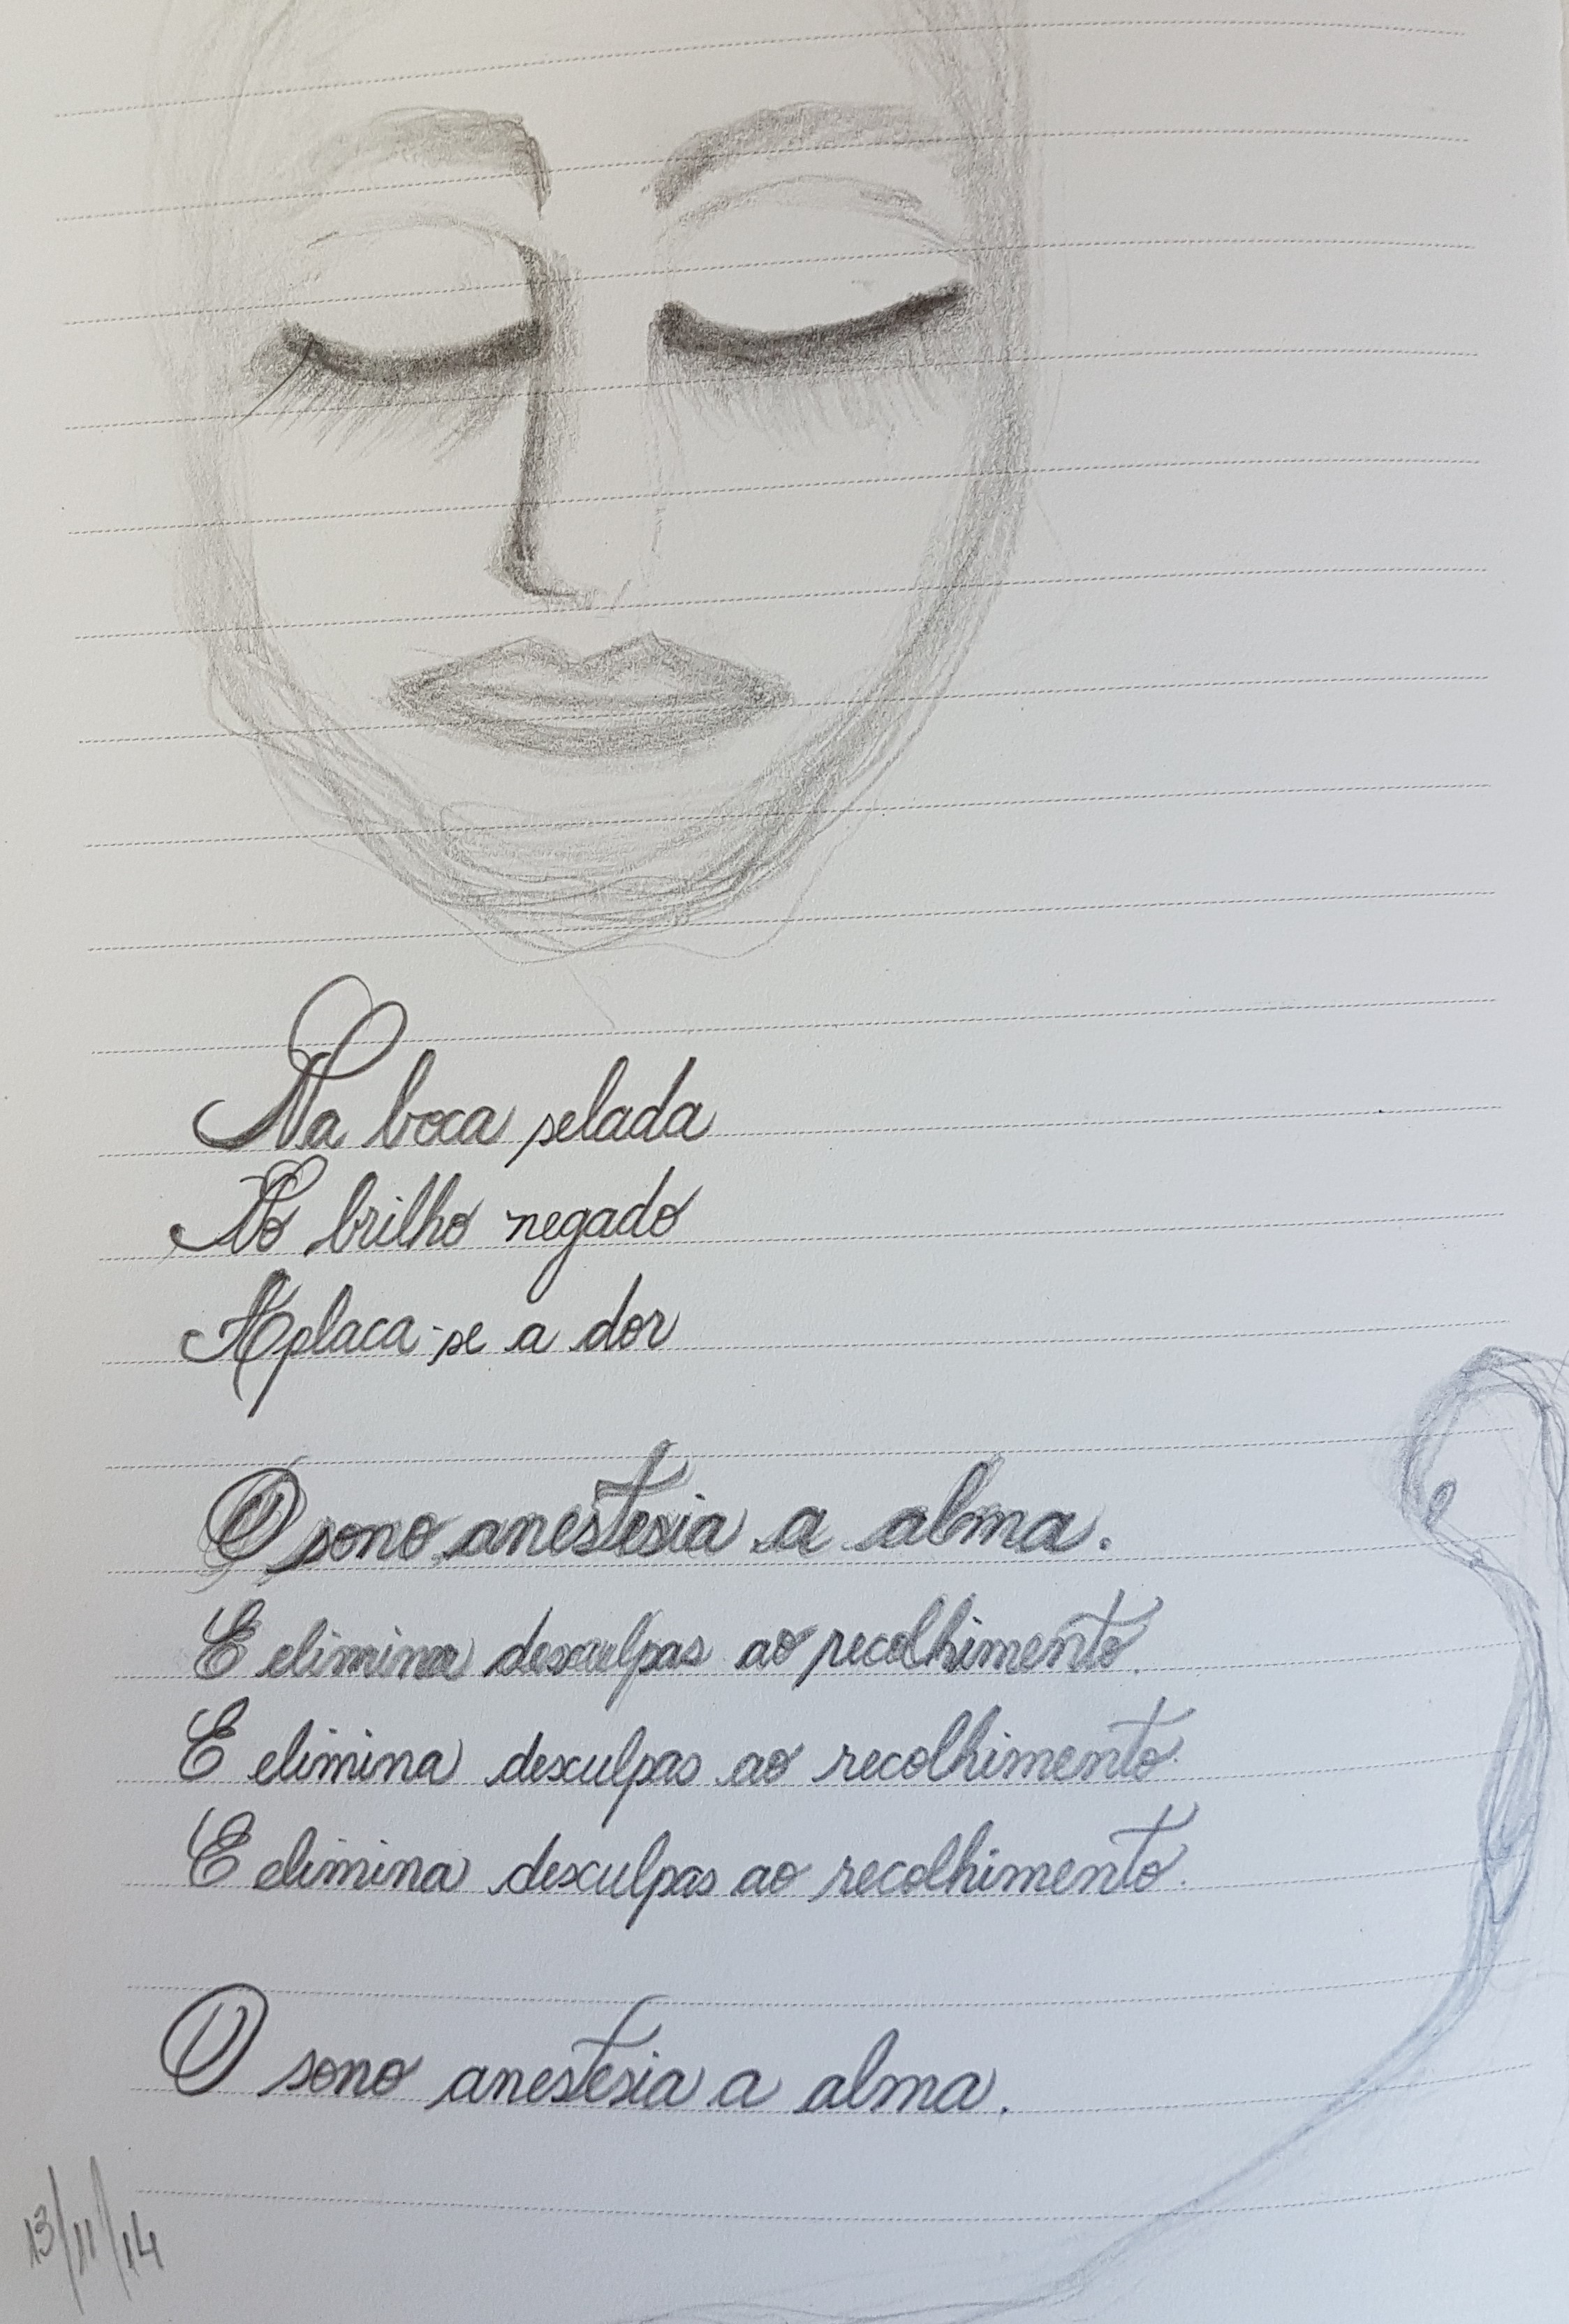 Na boca selada
No brilho negado
Aplaca-se a dor
O sono anestesia a alma.
E elimina desculpas ao recolhimento.
E elimina desculpas ao recolhimento.
E elimina desculpas ao recolhimento.
O sono anestesia a alma.
13/11/14